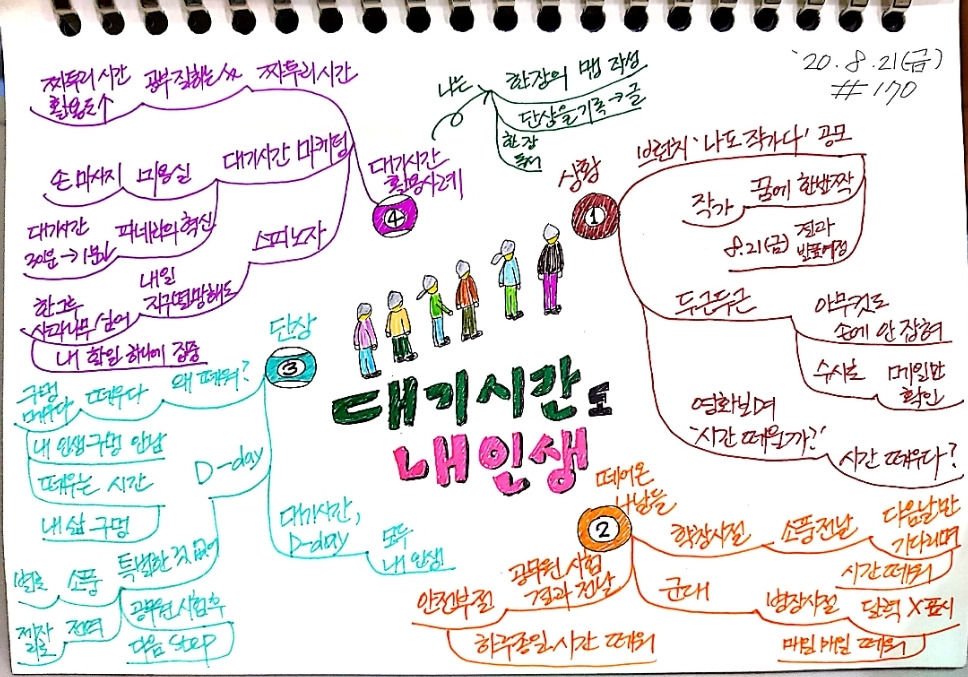 '20. 8. 21(금)
#170
대기시간도
내 인생
1
상황
브런치 '나도 작가다' 공모
작가
꿈에 한발짝
8.21(금) 결과
발표예정
두근두근
아무것도
손에 안 잡혀
수시로
메일만
확인
영화보며
'시간 떼울까?'
시간 떼우다?
2
떼어온
나날들
학창시절
소풍전날
다음날만
기다리며
시간 떼워
군대
병장시절
달력 X표시
매일 매일 떼워
공무원 시험
결과 전날
안전부절
하루종일 시간 떼워
3
단상
왜 떼워?
떼우다
구멍
메우다
내 인생 구멍 안남
떼우는 시간
내 삶 구멍
D-day
특별한 것 없어
소풍
별로
전역
제자
리로
공무원 시험후
다음 Step
대기시간,
D-day
모두
내 인생
4
대기시간
활용사례
찌투리시간
공부 잘하는
찌투리 시간
활용도↑
대기시간 마케팅
미용실
손 마사지
파네라의 혁신
대기시간
→1분
스피노자
내일
지구멸망해도
한그루
사과나무 심어
내 할일 하나에 집중
나는
한장의 맵 작성
단상을 기록→글
한장
독서